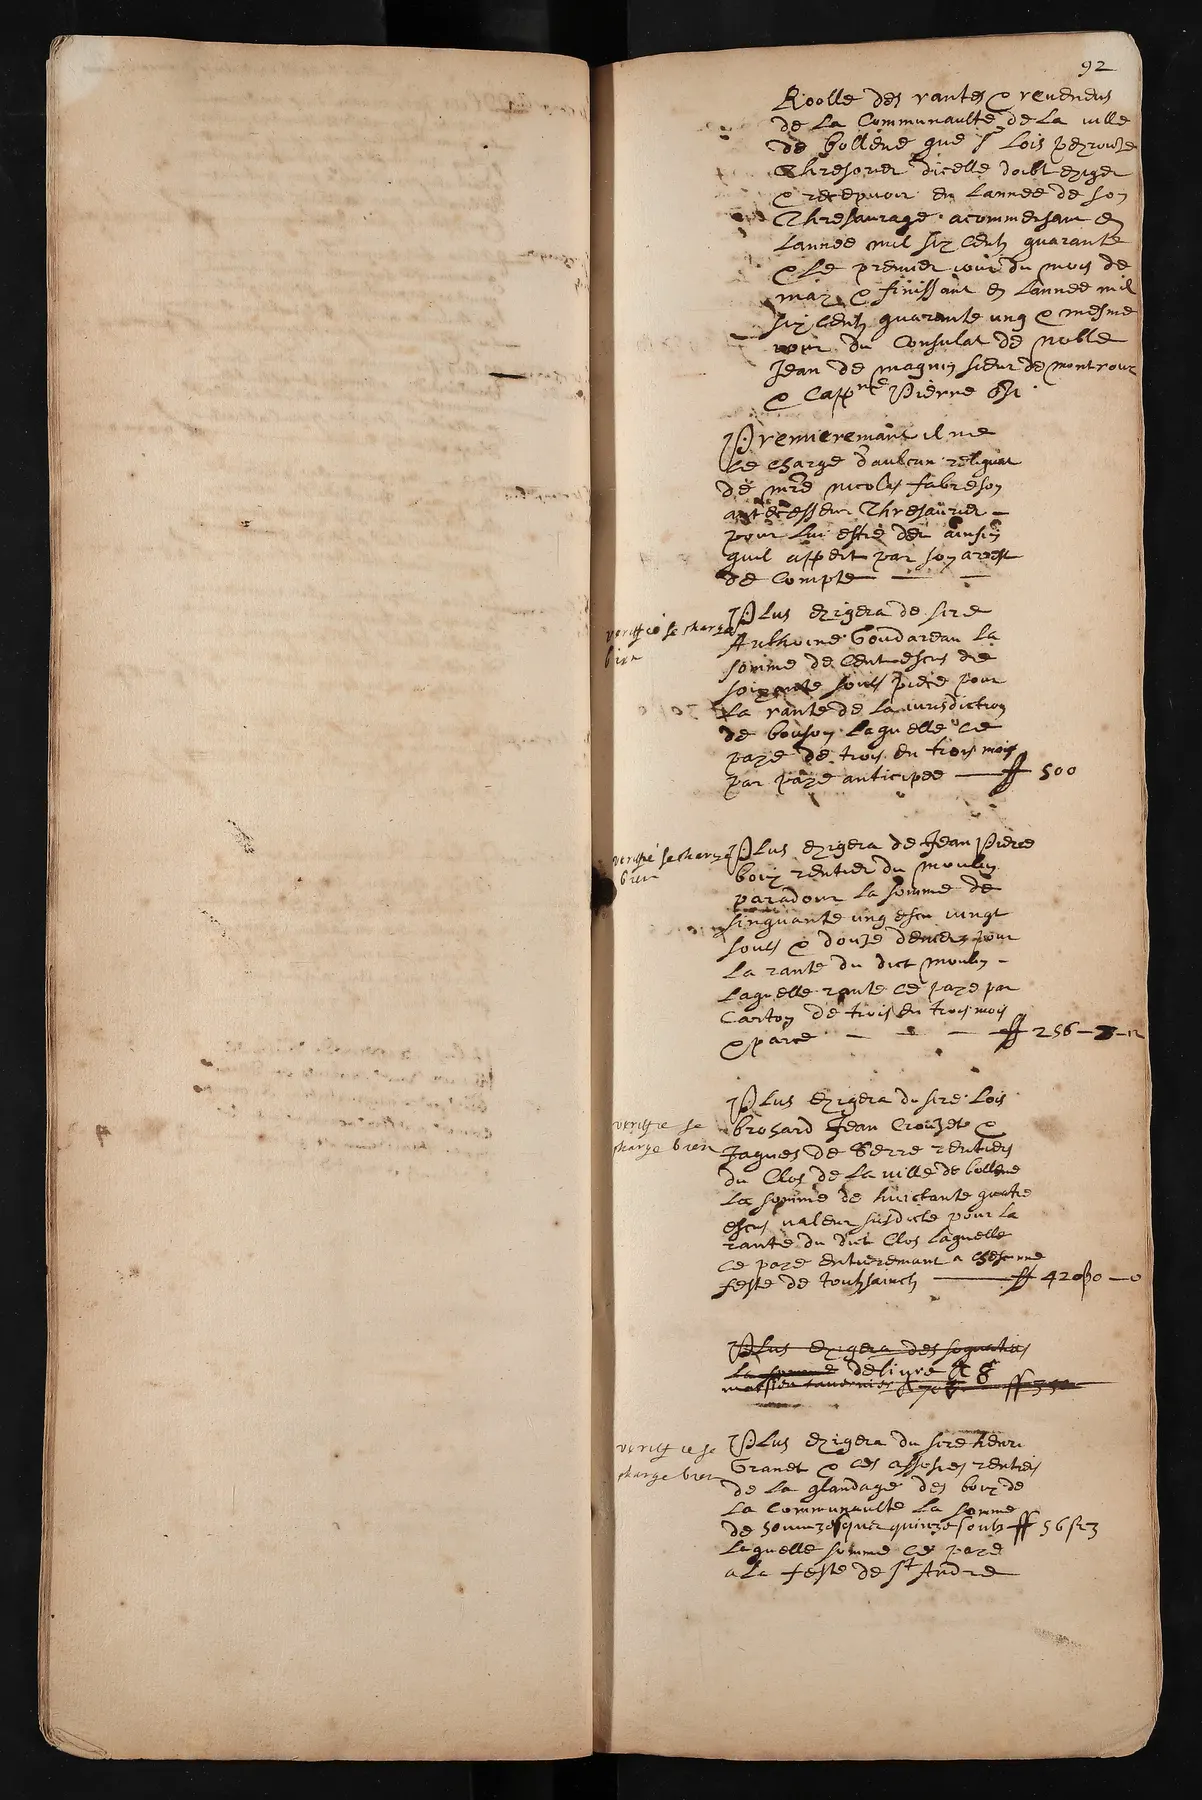 92
Roolle des rantes & revenus
de la Communaulte de la ville
de bollene que sr Lois peyrouze
Thresorier dicelle doibt exiger
& recepuoir en Lannee de son
Thresaurage acommensant en
Lannee mil six centz quarante
& le premier iour du mois de
may & finissant en Lannee mil
six centz quarante ung & mesme
iour du Consulat de noble
Jean de magnin sieur de montroux
& Cappne Pierre
Premieremant il ne
se charge d'aulcun reliquat
de mre nicolas fabre son
antecesseur Thresaurier
pour lui estre deu ainsin
quil appert par son arrest
de Compte
veriffie se charge
bien
Plus exigera de sire
Anthoine Goudareau la
somme de Cent escus de
soixante soulz piece pour
La rante de La iurisdiction
de bouson Laquelle ce
paye de trois en trois mois
par paye anticipee ff 500
veriffie se charge
bien
Plus exigera de Jean Pierre
bouy rentier du moulin
paradour La somme de
sinquante ung escu vingt
soulz & douze deniers pour
La rante du dict moulin
Laquelle rante ce paye par
Carton de trois en trois mois
& parce ff 256 - 8 - 12
veriffie se
charge bien
Plus exigera du sire Lois
brohard Jean Crouzet &
Jaques de Serre rentiers
du Clos de La ville de bollene
La somme de huictante quatre
escus valeur susdicte pour La
rante du dict Clos Laquelle
ce paye entieremant a chescune
feste de touhsainctz ff 420 ß 0 - 0
Plus exigera des
La somme delivre A
tavernier
veriffie se
charge bien
Plus exigera du sire henri
Granet & ces assosies rentiers
de La glandage des bois de
La Communaulte La somme
de quinze soulz ff 56 ß 3
Laquelle somme ce paye
a La feste de St Andre